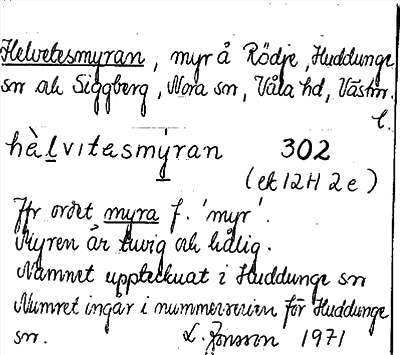 Helvetesmyran, myr å Rödje, Huddunge
sn och Siggberg, Nora sn, Våla hd, Västm.
l.
hèlvitesmýran 302
(ek 12H 2e)
Jfr ordet myra f. 'myr'.
Myren är tuvig och hålig.
Namnet upptecknat i Huddunge sn
Numret ingår i nummerserien för Huddunge
sn. L. Jonsson 1971